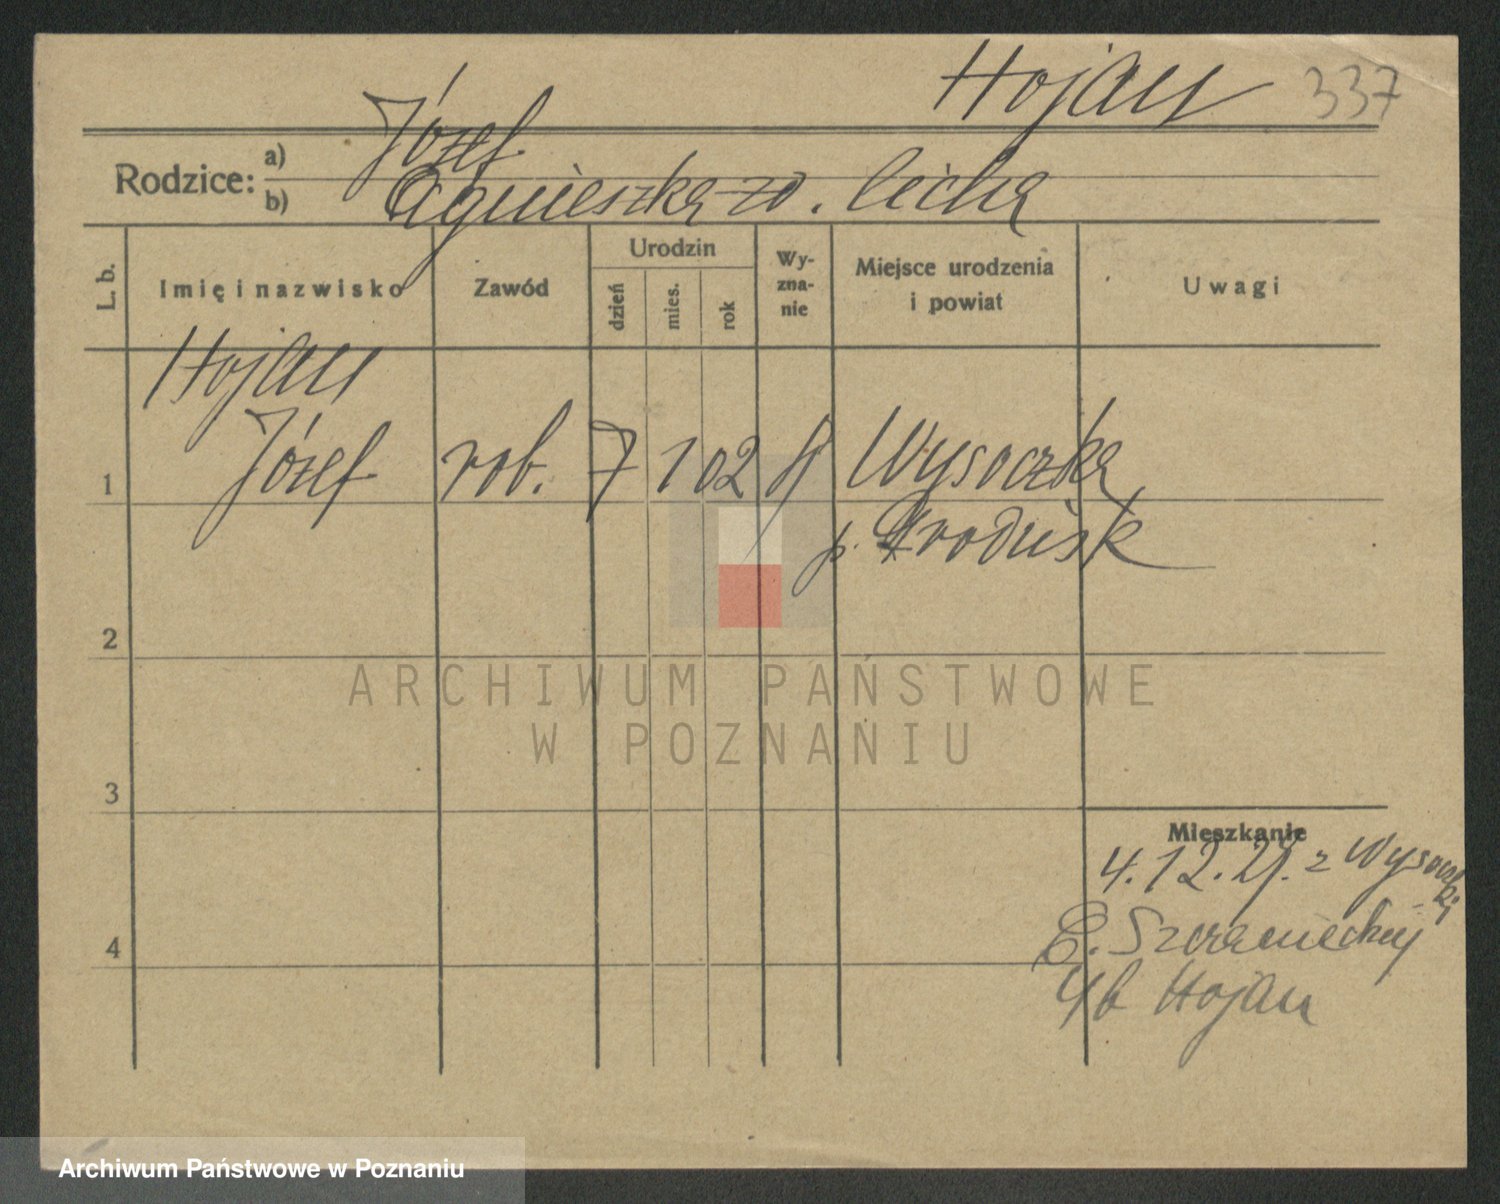 Hojan 337
Rodzice: a) Józef
b) Agnieszka zd. Cicha
L. b. Imię i nazwisko Zawód Urodzin dzień mies. rok Wy-zna-nie Miejsce urodzenia i powiat Uwagi
Hojan
1 Józef rob. 7 1 02 k Wysoczka
p. Grodzisk
2
3
Mieszkanie
4.12.29. z Wysoczki
4
E. Szczanieckiej
4b Hojan
ARCHIWUM PAŃSTWOWE
W POZNANIU
Archiwum Państwowe w Poznaniu